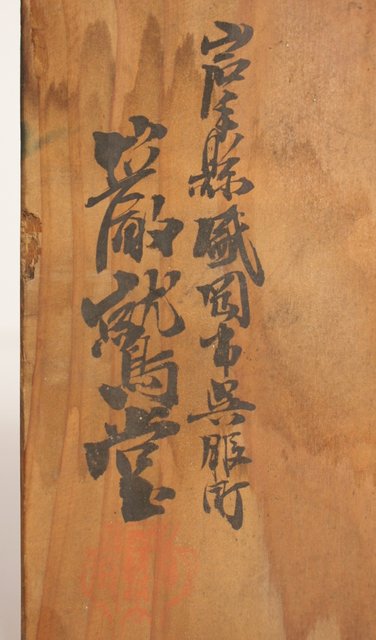 岩手縣盛岡市呉服町
巌鷲堂